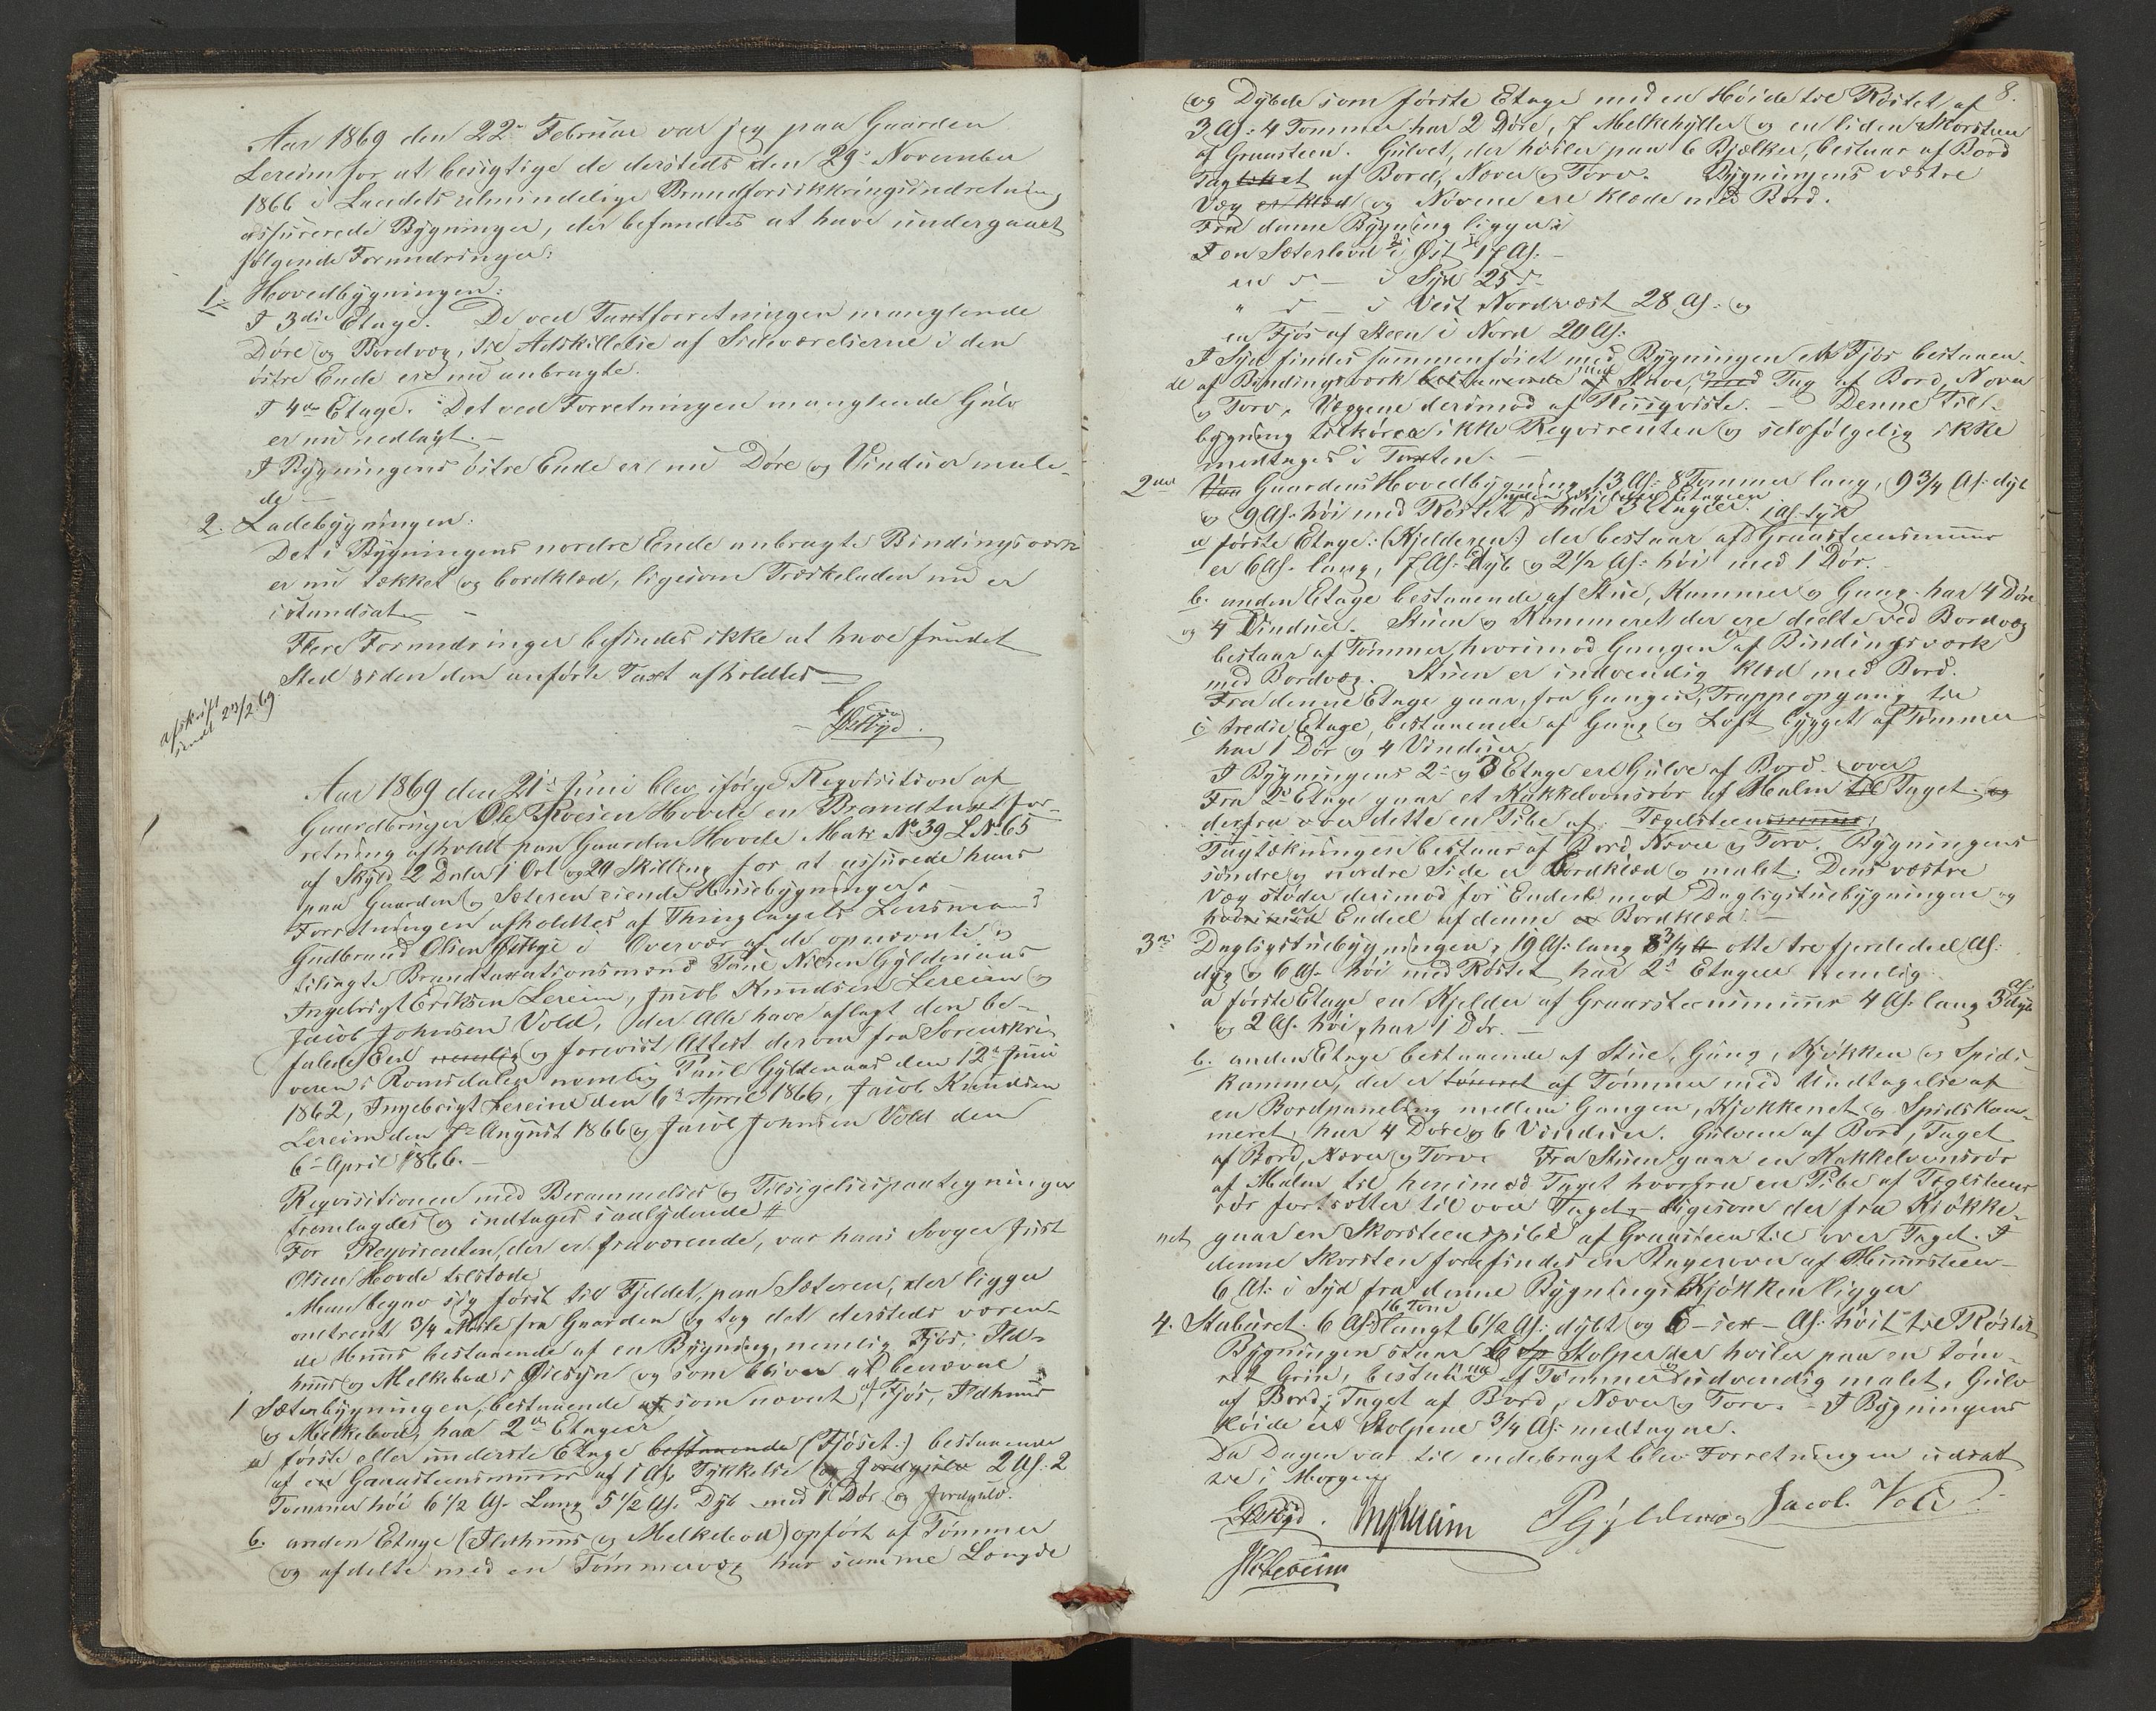 Aar 1869 den 22de Februar var jeg paa Gaarden
Lereim for at besigtige de dersteds den 29de November
1866 i Landets almindelige Brandforsikkringsindretning
assurerede Bygninger, der befandtes at have undergaaet
følgende Forandringer:
1. Hovedbygningen:
I 3die Etage. De ved Taxtforretningen manglende
Døre og Bordvæg, til Adskillelse af Sideværelserne i den
østre Ende ere nu anbragte.
I 4de Etage. Det ved Forretningen manglende Gulv
er nu nedlagt. —
I Bygningens østre Ende er nu Døre og Vinduer male-
de —
2. Ladebygningen:
Det i Bygningens nordre Ende anbragte Bindingsværk
er nu tækket og bordklæd, ligesom Træskeladen nu er
istandsat —
Flere Forandringer befindes ikke at have fundet
Sted siden den anførte Taxt afholdtes —
afskrift
sendt 23/2 69
Aar 1869 den 21de Juni blev ifølge Reqvisition af
Gaardbruger Ole Hovde en Brandtaxtfor-
retning afholdt paa Gaarden Hovde Matr No 39 L No 65
af Skyld 2 Daler 1 Ort og 24 Skilling for at assurere hans
paa Gaarden og Sæteren eiende Husebygninger.
Forretningen afholdtes af Thinglagets Lensmand
Gudbrand Olsen Østbye i Overvær af de opnævnte og
tilsagte Brandtaxationsmænd Paul Nilsen Gyldenaas
Ingebrigt Eriksen Lereim, Jacob Knudsen Lereim og
Jacob Johnsen Vold, der Alle have aflagt den be-
falede Eed nemlig og forevist Attest derom fra Sorenskri-
veren i Romsdalen nemlig Paul Gyldenaas den 12te Juni
1862, Ingebrigt Lereim den 6te April 1866, Jacob Knudsen
Lereim den 7de August 1866 og Jacob Johnsen Vold den
6te April 1866. —
Reqvisitionen med Berammelses og Tilsigelsespaategninger
fremlagdes og indtages saalydende #
For Reqvirenten, der er fraværende, var hans Svoger Just
Olsen Hovde tilstede
Man begav sig først til Fjeldet, paa Sæteren, der ligger
omtrent 3/4 Mile fra Gaarden og tog det dersteds væren-
de Huus bestaaende af en Bygning, nemlig Fjøs, Ild-
huus og Melkebod i Øiesyn og som bliver at benævne
1 Sæterbygningen, bestaaende af som nævnt af Fjøs, Ildhuus
og Melkebod, har 2de Etager
a første eller underste Etage bestaaende (Fjøset.) bestaaende
af en Graasteensmuur af 1 Al. Tykkelse og Jordgulv 2 Al: 2
Tommer høi 6 1/2 Al. Lang 5 1/2 Al. Dyb med 1 Dør og Jordgulv.
b. anden Etage (Ildhuus og Melkebod) opført af Tømmer
og afdelte med en Tømmervæg har samme Længde
8.
og Dybde som første Etage med en Høide til Røstet af
3 Al: 4 Tommer har 2 Døre, 7 Melkehyller og en liden Skorsteen
af Graasteen. Gulvet, der hviler paa 6 Bjelker, bestaar af Bord
Taget af Bord, Næver og Torv. Bygningens vestre
Væg er klæd og Növene ere klæde med Bord.
Fra denne Bygning ligger:
I en Sæterbod i Øst 17 Al: —
en do — i Syd 25 do
" do — i Vest Nordvest 28 Al: og
en Fjøs af Steen i Nord 20 Al:
I Syd findes sammenføiet med Bygningen et Fjøs bestaaen-
de af Bindingsværk bestaaende med Stave, med Tag af Bord, Næver
og Torv. Væggene derimod af Riisqviste. — Denne Til-
bygning tilhører ikke Reqvirenten og selvfølgelig ikke
medtages i Taxten. —
2den Gaardens Hovedbygning, 13 Al: 8 Tommer lang, 9 3/4 Al: dyb
og 9 Al: høi med Røstet har 3 Etager.
a første Etage: (Kjelderen) der bestaar af Graasteensmuur 1 Al. tyk
er 6 Al: lang, 7 Al: dyb og 2 1/2 Al: høi med 1 Dør. —
b. anden Etage bestaaende af Stue, Kammer og Gang har 4 Døre
og 4 Vinduer. Stuen og Kammeret der ere deelte ved Bordvæg
bestaar af Tømmer, hvorimod Gangen er af Bindingsværk
med Bordvæg. Stuen er indvendig klæd med Bord.
Fra denne Etage gaar, fra Gangen, Trappeopgang til
c tredie Etage, bestaaende af Gang og Loft bygget af Tømmer
har 1 Dør og 4 Vinduer
I Bygningens 2de og 3 Etage ere Gulve af Bord.
Fra 2de Etage gaar et Kakkelovnsrør af Malm til over Taget og
derfra over dette en Pibe af Tegelsteensmuur.
Tagtækningen bestaar af Bord Næver og Torv. Bygningens
søndre og nordre Side er bordklæd og malet. Dens vestre
Væg støder derimod for Endeel mod Dagligstuebygningen og
hvorimod Endeel af denne er Bordklæd. —
3die Dagligstuebygningen, 19 Al: lang 8 3/4 otte tre fjerdedeel Al:
dyb og 6 Al. høi med Røstet har 2de Etager nemlig
a første Etage en Kjelder af Graasteensmuur 4 Al. lang 3 Al. dyb
og 2 Al: høi, har 1 Dør. —
b. anden Etage bestaaende af Stue, Gang, Kjøkken og Spiis-
kammer, der er tømret af Tømmer med Undtagelse af
en Bordpaneling mellem Gangen, Kjøkkenet og Spiiskam-
meret, har 4 Døre og 6 Vinduer. Gulvene af Bord, Taget
af Bord, Næver og Torv. Fra Stuen gaar en Kakkelovnsrør
af Malm til henimod Taget hvorfra en Pibe af Teglsteens
rør fortsætter til over Taget, — ligesom der fra Kjøkke-
net gaar en Skorsteenspibe af Graasteen til over Taget. I
denne Skorsten forefindes en Bagerovn af Muursteen —
6 Al: i Syd fra denne Bygnings Kjøkken ligger
4. Stabüret 6 Al: 16 Tom langt 6 1/2 Al: dybt og 6 — sex — Al: høit til Røstet
Bygningen staar Stolper der hviler paa en tøm-
ret Grin, bestaaende af Tømmer udvendig malet, Gulv
af Bord, Taget af Bord, Næver og Torv. — I Bygningens
Høide er Stolpene 3/4 Al: medtagne.
Da Dagen var til endebragt blev Forretningen udsat
til i Morgen
Østbyd. IngLereim PGyldenaas Jacob Vold
JKLereim